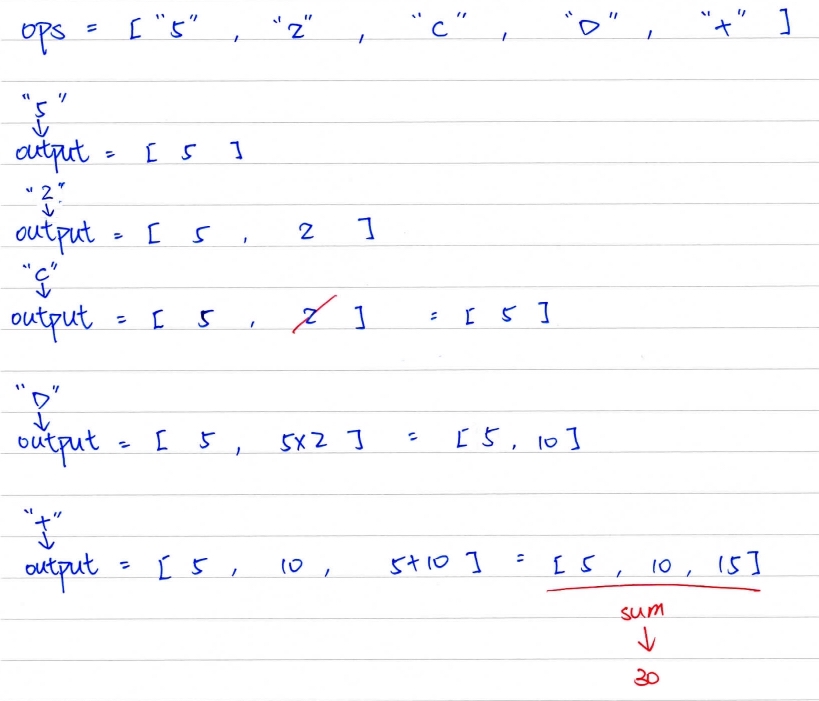 ops = [ "5" , "2" , "C" , "D" , "+" ]
"5"
↓
output = [ 5 ]
"2"
↓
output = [ 5 , 2 ]
"C"
↓
output = [ 5 , 2 ] = [ 5 ]
"D"
↓
output = [ 5 , 5x2 ] = [ 5 , 10 ]
"+"
↓
output = [ 5 , 10 , 5+10 ] = [ 5 , 10 , 15 ]
sum
↓
30